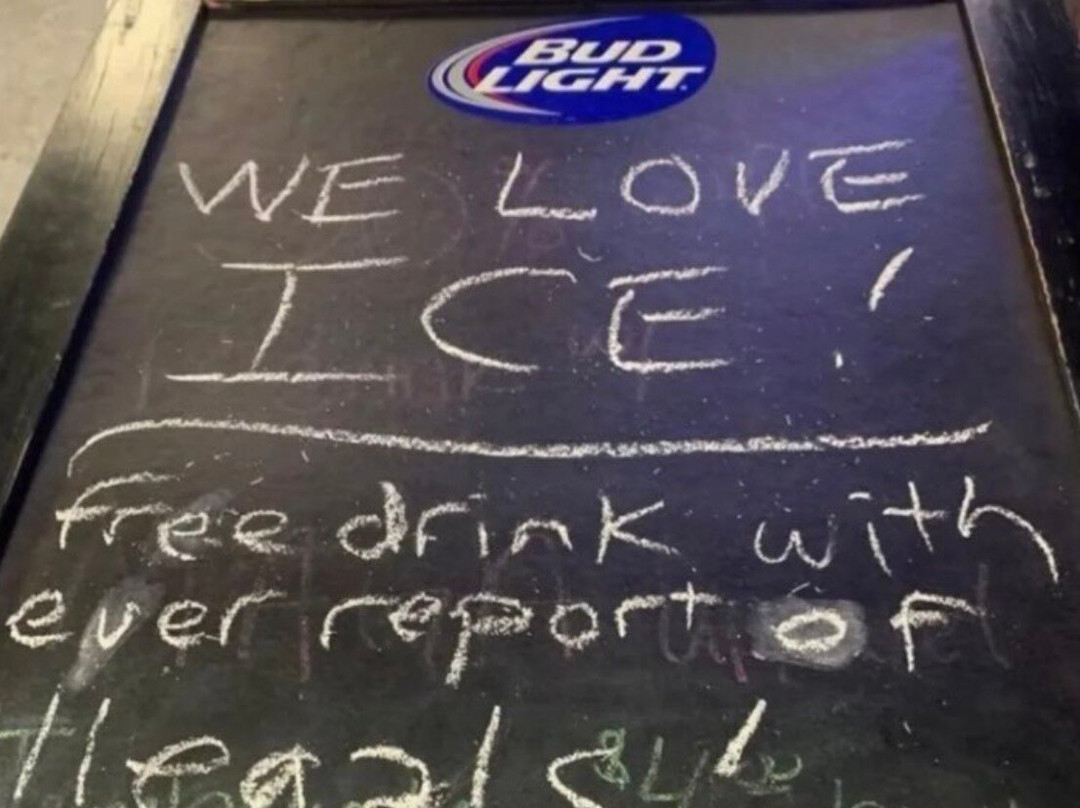 BUD
LIGHT
WE LOVE
ICE!
free drink with
ever report of
Illegals!